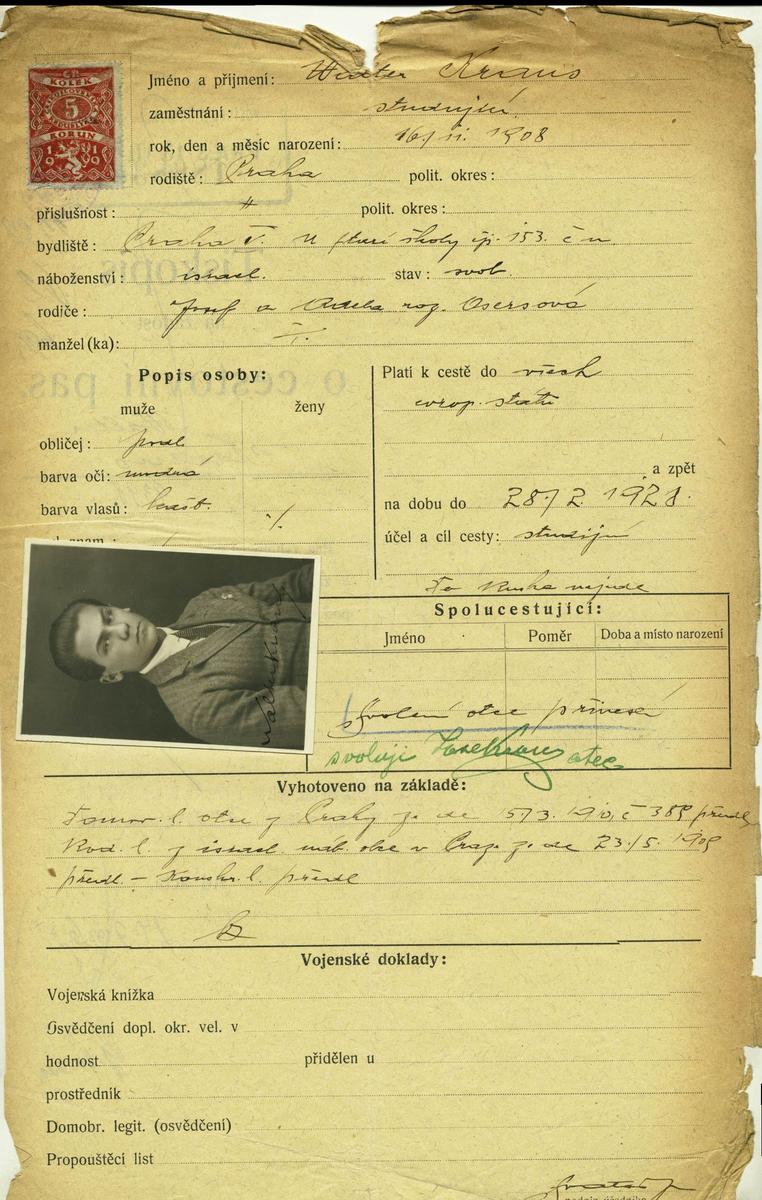 KOLEK
5
KORUN
1919
Jméno a příjmení: Walter Kraus
zaměstnání: studující
rok, den a měsíc narození: 16/ 1908
rodiště: Praha polit. okres:
příslušnost: " polit. okres:
bydliště: Praha V. u staré školy čp. 153. č n.
náboženství: israel. stav: svob.
rodiče: Josef a Adela roz. Osersová
manžel (ka):
Popis osoby:
muže ženy
obličej:
barva očí: modrá
barva vlasů: kašt.
Platí k cestě do všech
evrop. států
a zpět
na dobu do 28/2 1928.
účel a cíl cesty: studijní
Do Ruska nejede
Spolucestující:
Jméno Poměr Doba a místo narození
Svolení otce
svoluji otec
Vyhotoveno na základě:
Domov. l. otce z Prahy ze dne 15/3. č 389 předl.
Rod. l. z israel. náb. obce v Praze ze dne 23./5. 1909
předl – l. předl
Vojenské doklady:
Vojenská knížka
Osvědčení dopl. okr. vel. v
hodnost přidělen u
prostředník
Domobr. legit. (osvědčení)
Propouštěcí list